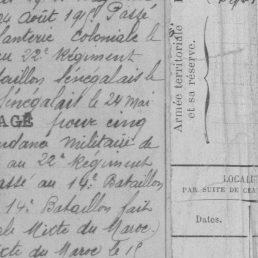 24 août 1915. Passé
anterie Coloniale l
au 22e Régiment
aillon Sénégalais le
Sénégalais le 24 mai
AGÉ pour cinq
militaire de
au 22e Régiment
assé au 14e Bataillon
14e Bataillon fait
ale Mixte du Maroc.
ixte du Maroc le 1
Armée territoriale
et sa réserve.
LOCALI
PAR SUITE DE CHA
Dates.